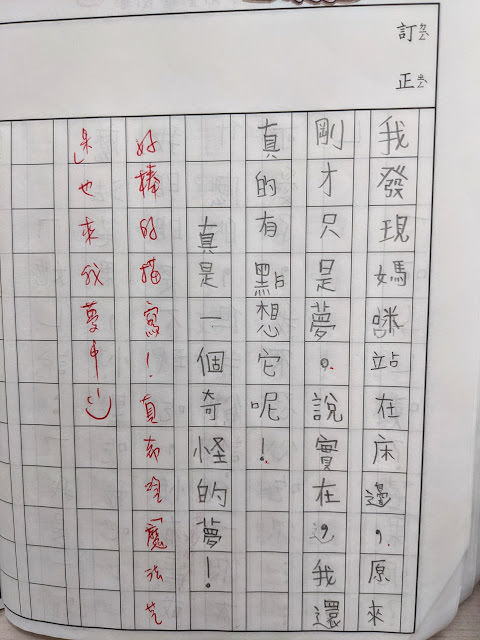 訂正
我發現媽咪站在床邊，原來
剛才只是夢。說實在，我還
真的有點想它呢！
真是一個奇怪的夢！
好棒的描寫！真希望「魔法芒
果」也來我夢中